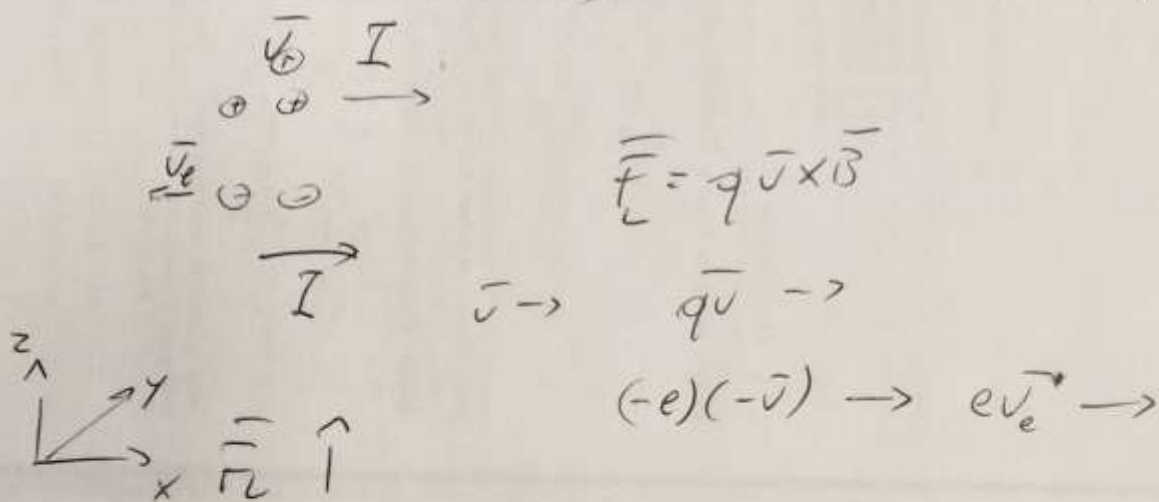 v̄₊ I
⊕ ⊕ →
v̄ₑ ⊖ ⊖
I →
F̄_L = q v̄ × B̄
v̄ → q v̄ →
(-e)(-v̄) → e v̄ₑ →
z
y
x
F̄_L ↑